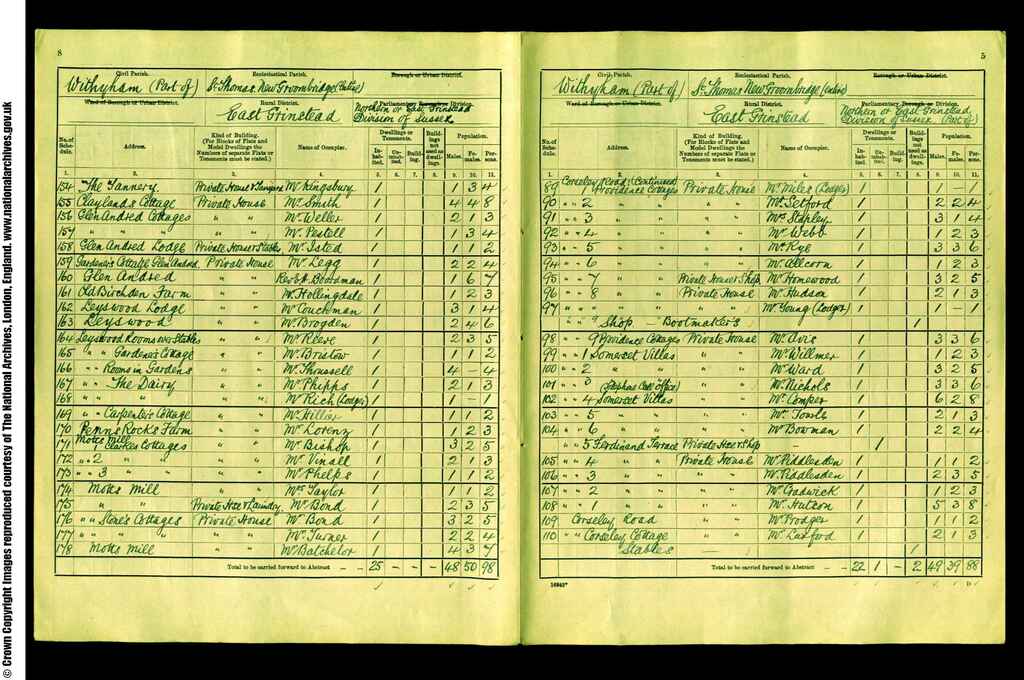 © Crown Copyright Images reproduced courtesy of The National Archives, London, England. www.nationalarchives.gov.uk
8
Civil Parish. Ecclesiastical Parish. Borough or Urban District.
Withyham (Part of) St Thomas. New Groombridge (Entire)
Ward of Borough or Urban District. Rural District. Parliamentary Borough or Division.
East Grinstead Northern or East Grinstead Division of Sussex
No. of Schedule. Address. Kind of Building. (For Blocks of Flats and Model Dwellings the Numbers of separate Flats or Tenements must be stated.) Name of Occupier. Dwellings or Tenements. Inhabited. Uninhabited. Building. Buildings not used as dwellings. Population. Males. Females. Persons.
1. 2. 3. 4. 5. 6. 7. 8. 9. 10. 11.
154 The Tannery Private House & Tanyard Mr Kingsbury 1 1 3 4
155 Claylands Cottage Private House Mr Smith 1 4 4 8
156 Glen Andred Cottages " " Mr Weller 1 2 1 3
157 " " " " " Mr Pestell 1 1 3 4
158 Glen Andred Lodge Private House & Stables Mr Isted 1 1 1 2
159 Gardener's Cottage Glen Andred Private House Mr Legg 1 2 2 4
160 Glen Andred " " Rev E.A. Boordman 1 1 6 7
161 Old Birchden Farm " " Mr Hollingdale 1 1 2 3
162 Leyswood Lodge " " Mr Couchman 1 3 1 4
163 Leyswood " " Mr Brogden 1 2 4 6
164 Leyswood Rooms over Stables " " Mr Reese 1 2 3 5
165 " " Gardener's Cottage " " Mr Bristow 1 1 1 2
166 " " Rooms in Gardens " " Mr Thoussell 1 4 - 4
167 " " The Dairy " " Mr Phipps 1 2 1 3
168 " " " " " Mr Rich (Lodger) 1 1 - 1
169 " " Carpenter's Cottage " " Mr Hillier 1 1 1 2
170 Penns Rocks Farm " " Mr Lorenz 1 1 2 3
171 Motts Mill 1 Clarkes Cottages " " Mr Bishop 1 3 2 5
172 " " 2 " " " Mr Vinall 1 2 1 3
173 " " 3 " " " " Mr Phelps 1 1 1 2
174 Motts Mill " " Mrs Taylor 1 1 1 2
175 " " Private Hse & Laundry Mr Bond 1 2 3 5
176 " " Stone's Cottages Private House Mr Bond 1 3 2 5
177 " " " " " " Mr Turner 1 2 2 4
178 Motts Mill " " Mr Batchelor 1 4 3 7
Total to be carried forward to Abstract - - 25 - - - 48 50 98
5
Civil Parish. Ecclesiastical Parish. Borough or Urban District.
Withyham (Part of) St Thomas New Groombridge (entire)
Ward of Borough or Urban District. Rural District. Parliamentary Borough or Division.
East Grinstead Northern or East Grinstead Division of Sussex (Part of)
No. of Schedule. Address. Kind of Building. (For Blocks of Flats and Model Dwellings the Numbers of separate Flats or Tenements must be stated.) Name of Occupier. Dwellings or Tenements. Inhabited. Uninhabited. Building. Buildings not used as dwellings. Population. Males. Females. Persons.
1. 2. 3. 4. 5. 6. 7. 8. 9. 10. 11.
Corseley Road (Continued)
89 1 Providence Cottages Private House Mr Miles (Lodger) 1 1 - 1
90 " " 2 " " " " Mr Setford 1 2 2 4
91 " " 3 " " " " Mrs Stapley 1 3 1 4
92 " " 4 " " " " Mr Webb 1 1 2 3
93 " " 5 " " " " Mr Kye 1 3 3 6
94 " " 6 " " " " Mr Allcorn 1 1 2 3
95 " " 7 " " Private House & Shop Mr Homewood 1 3 2 5
96 " " 8 " " Private House Mr Hudson 1 2 1 3
97 " " " " " " Mr Young (Lodger) 1 1 - 1
" " " Shop - Bootmakers 1
98 " " 9 Providence Cottages Private House Mr Avis 1 3 3 6
99 " " 1 Somerset Villas " " Mr Willmer 1 1 2 3
100 " " 2 " " " " Mr Ward 1 3 2 5
101 " " 3 (Telephone Call Office) " " Mr Nichols 1 3 3 6
102 " " 4 Somerset Villas " " Mr Comper 1 6 2 8
103 " " 5 " " " " Mr Towls 1 2 1 3
104 " " 6 " " " " Mr Bowman 1 2 2 4
" " 5 Ferdinand Terrace Private Hse & Shop - 1
105 " " 4 " " Private House Mr Piddlesden 1 1 1 2
106 " " 3 " " " " Mr Piddlesden 1 2 3 5
107 " " 2 " " " " Mr Gadwick 1 1 2 3
108 " " 1 " " " " Mr Hutson 1 5 3 8
109 Corseley Road " " Mr Prodger 1 1 1 2
110 " " Corseley Cottage " " Mr Luxford 1 2 1 3
" Stables - 1
Total to be carried forward to Abstract - - 22 1 - 2 49 39 88